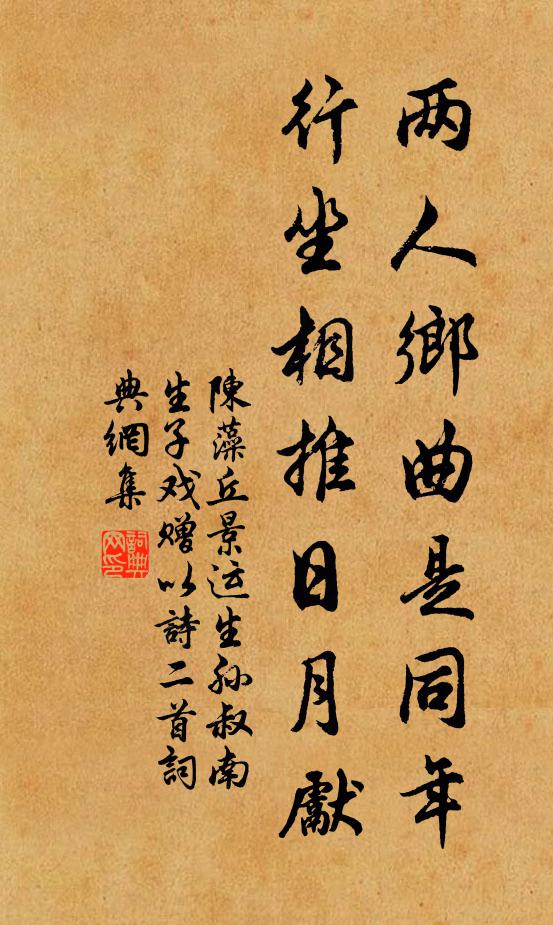 两人鄉曲是同年
行坐相推日月獻
陳藻丘景运生孙叔南
生子戏赠以詩二首詞
典網集
詞典
网印